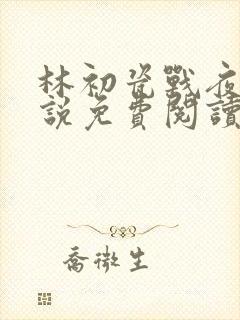 林初瓷戰夜
説免費閱讀
喬微生